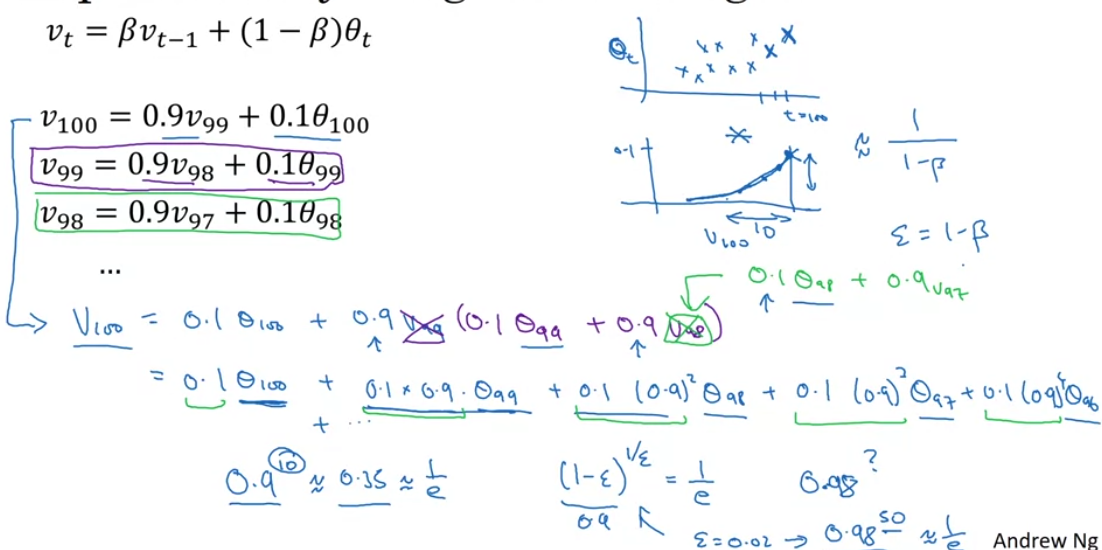 v_t = βv_{t−1} + (1 − β)θ_t
θ_t
t=100
v_100 = 0.9v_99 + 0.1θ_100
v_99 = 0.9v_98 + 0.1θ_99
v_98 = 0.9v_97 + 0.1θ_98
...
0.1
V_100 10
≈ 1/(1-β)
ε = 1-β
0.1 θ_98 + 0.9 v_97
V_100 = 0.1 θ_100 + 0.9 V_99 (0.1 θ_99 + 0.9 V_98)
= 0.1 θ_100 + 0.1 × 0.9 · θ_99 + 0.1 (0.9)^2 θ_98 + 0.1 (0.9)^3 θ_97 + 0.1 (0.9)^4 θ_96
+ ...
0.9^10 ≈ 0.35 ≈ 1/e
(1-ε)^{1/ε} = 1/e
0.9
0.98^?
ε=0.02 → 0.98^50 ≈ 1/e
Andrew Ng